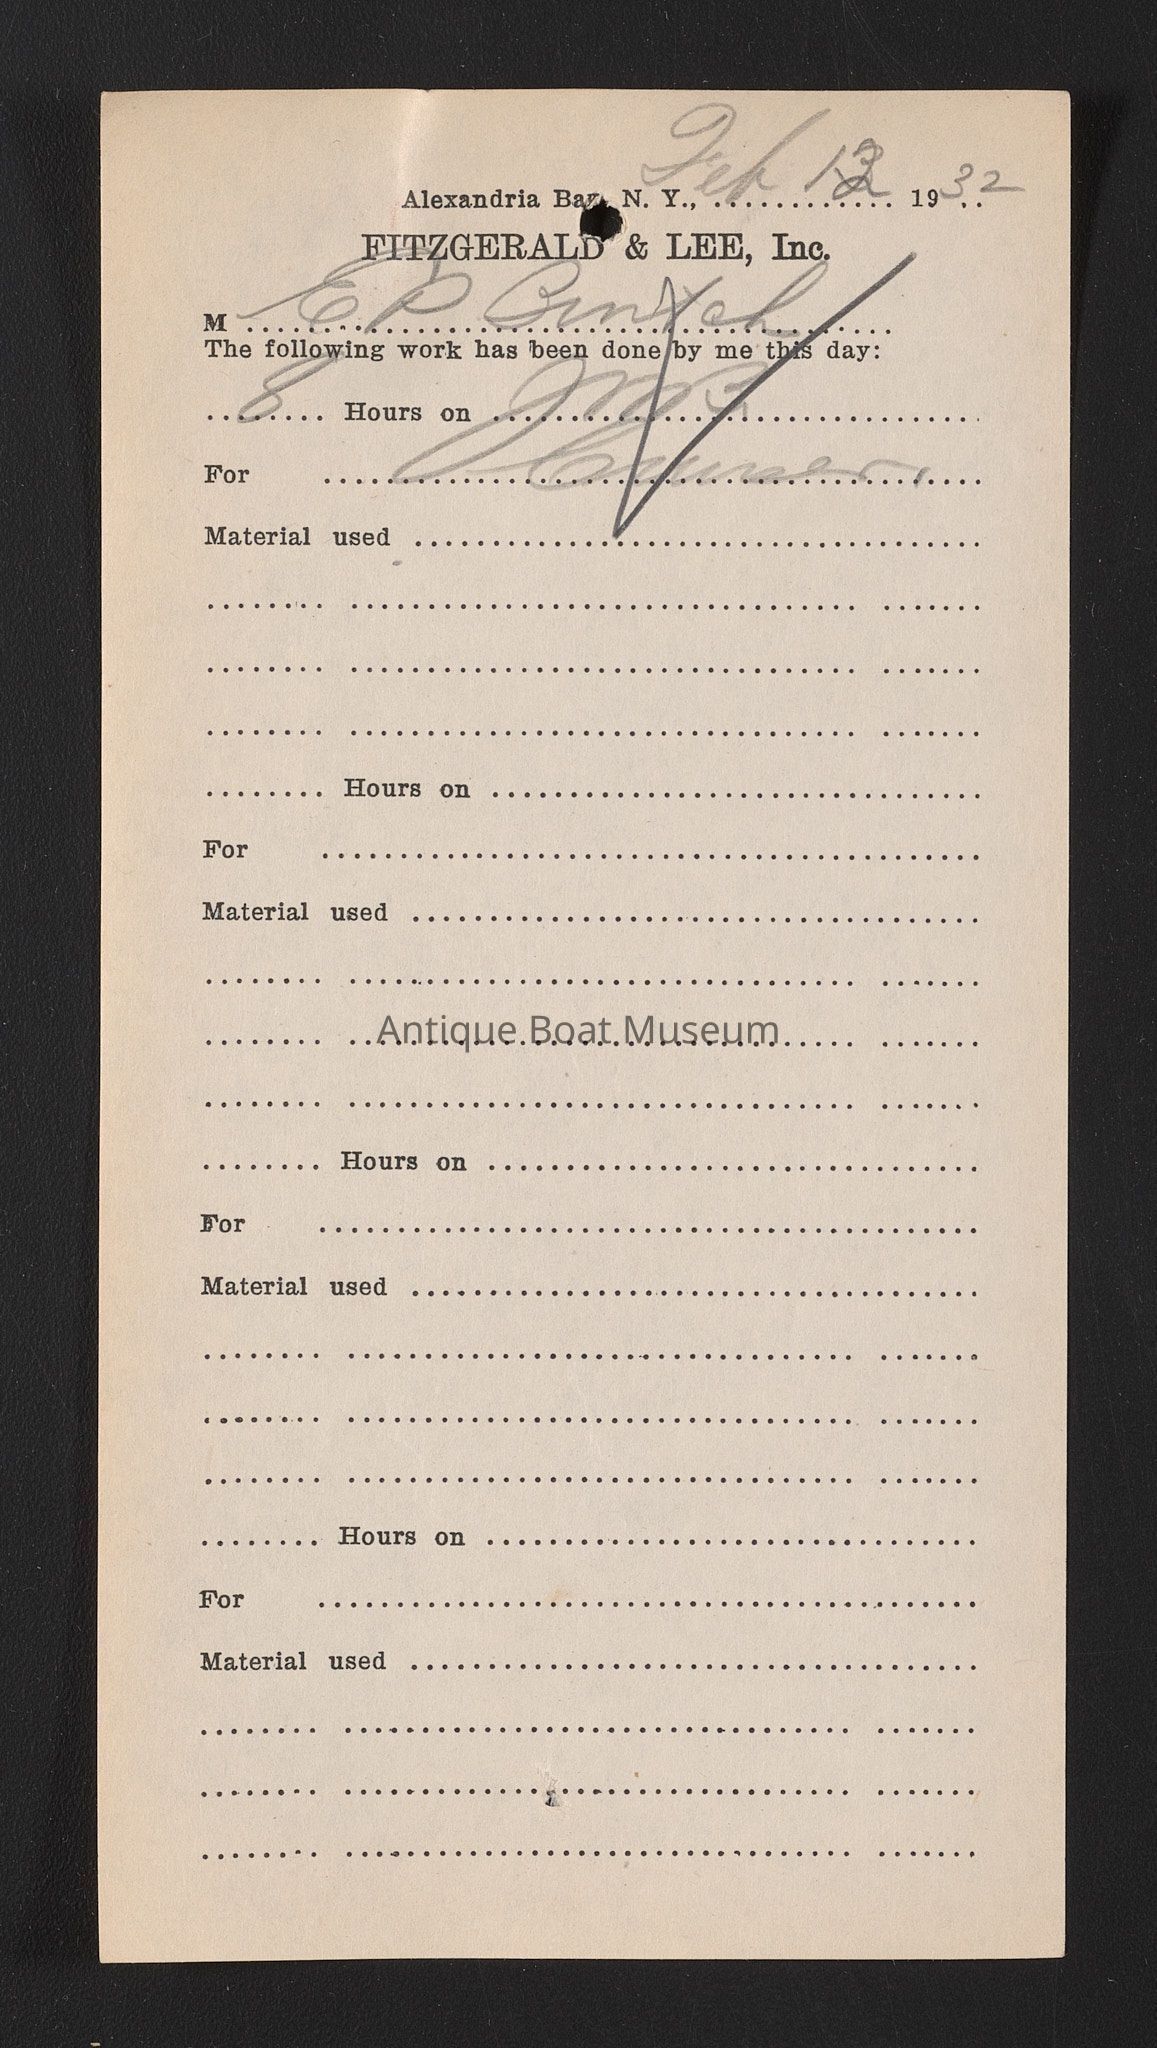 Alexandria Bay, N. Y., Feb 13 1932
FITZGERALD & LEE, Inc.
M E P
The following work has been done by me this day:
8 Hours on
For Cruiser.
Material used
Hours on
For
Material used
Antique Boat Museum
Hours on
For
Material used
Hours on
For
Material used